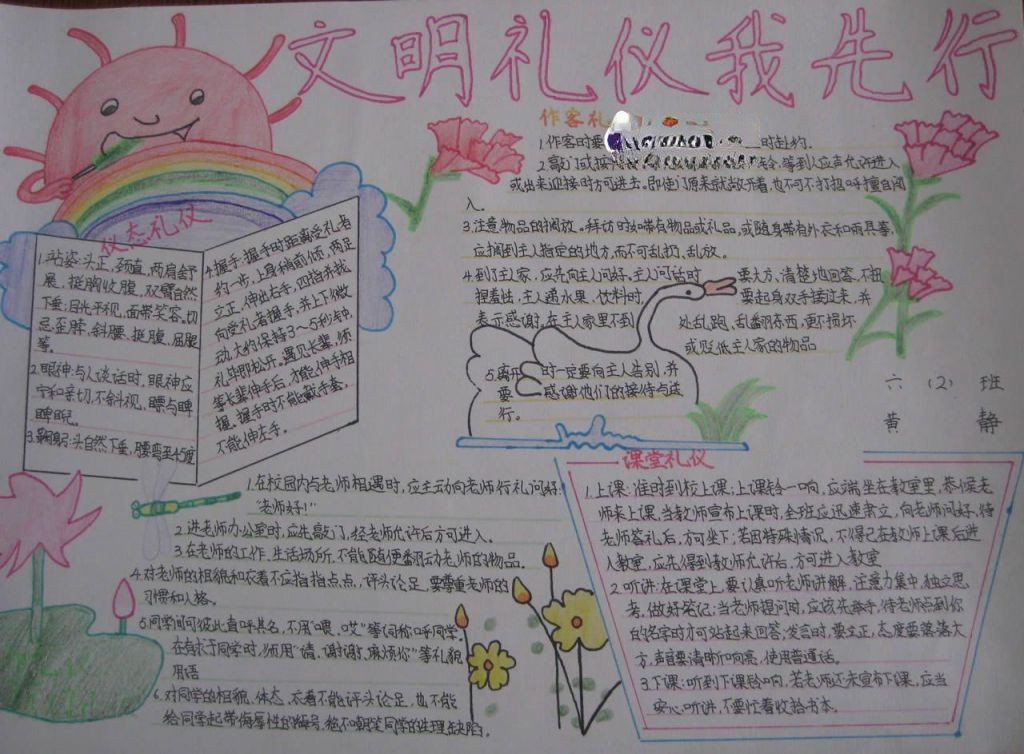 文明礼仪我先行
作客礼
1.作客时要 时赴约.
2.敲门或按 铃,等到应声允许进入
或出来迎接时方可进去.即使门原来就敞开着,也不可不打招呼擅自闯
入.
3.注意物品的搁放。拜访时如带有物品或礼品,或随身带有外衣和雨具等,
应搁到主人指定的地方,而不可乱扔,乱放。
4.到了主家,应先向主人问好.主人问话时 要大方,清楚地回答,不扭
捏羞怯,主人递水果,饮料时, 要起身双手接过来,并
表示感谢.在主人家里不到 处乱跑,乱翻东西,更不损坏
或贬低主人家的物品
5.离开 时一定要向主人告别,并
要 感谢他们的接待与送
行。
六(2)班
黄 静
仪态礼仪
1.站姿:头正,颈直,两肩舒
展,挺胸收腹,双臂自然
下垂,目光平视,面带笑容,切
忌歪脖,斜腰,挺腹,屈腿
等。
2.眼神:与人谈话时,眼神应
宁和亲切,不斜视,瞟与睥
睥睨.
3.鞠躬:头自然下垂,腰弯至45度
4.握手:握手时距离受礼者
约一步,上身稍前倾,两足
立正,伸出右手,四指并拢
向受礼者握手,并上下微
动,大约保持3～5秒钟,
礼毕即松开。遇见长辈,须
等长辈伸手后,才能伸手相
握.握手时不能戴手套,
不能伸左手。
1.在校园内与老师相遇时,应主动向老师行礼问好:
“老师好!”
2.进老师办公室时,应先敲门,经老师允许后方可进入。
3.在老师的工作,生活场所,不能随便翻动老师的物品.
4.对老师的相貌和衣着不应指指点点,评头论足,要尊重老师的
习惯和人格。
5.同学间可彼此直呼其名,不用“喂,哎”等词称呼同学.
在有求于同学时,须用“请,谢谢,麻烦你”等礼貌
用语
6.对同学的相貌,体态,衣着不能评头论足,也不能
给同学起带侮辱性的绰号,绝不嘲笑同学的生理缺陷.
课堂礼仪
1.上课:准时到校上课;上课铃一响,应端坐在教室里,恭候老
师来上课,当教师宣布上课时,全班应迅速肃立,向老师问好,待
老师答礼后,方可坐下;若因特殊情况,不得已在教师上课后进
入教室,应先得到教师允许后,方可进入教室
2.听讲:在课堂上,要认真听老师讲解,注意力集中,独立思
考,做好笔记;当老师提问时,应该先举手,待老师点到你
的名字时才可站起来回答;发言时,要立正,态度要落落大
方,声音要清晰响亮,使用普通话。
3.下课:听到下课铃响,若老师还未宣布下课,应当
安心听讲,不要忙着收拾书本.